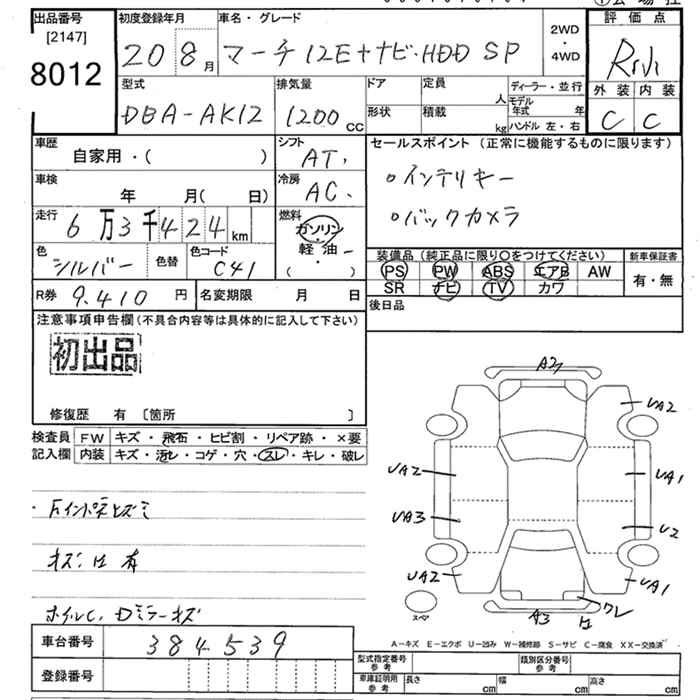 出品番号
[2147]
8012
初度登録年月
20 8月
車名・グレード
マーチ 12E+ナビ・HDD SP
2WD
・
4WD
評価点
外装 内装
C C
型式
DBA-AK12
排気量
1200 CC
ドア
形状
定員
人
積載
kg
ディーラー・並行
モデル年式 年
ハンドル 左・右
車歴
自家用・( )
シフト
AT.
車検
年 月( 日)
冷房
AC.
走行
6万3千424km
燃料
ガソリン
・
軽油
( ・ )
色
シルバー
色替
色コード
C41
R券 9.410円
名変期限 月 日
セールスポイント(正常に機能するものに限ります)
○インテリキー
○バックカメラ
装備品(純正品に限り○をつけてください)
新車保証書
PS PW ABS エアB AW
SR ナビ TV カワ
有・無
後日品
注意事項申告欄(不具合内容等は具体的に記入して下さい)
初出品
修復歴 有 〔箇所 〕
検査員 FW キズ・飛石・ヒビ割・リペア跡・×要
記入欄 内装 キズ・汚レ・コゲ・穴・スレ・キレ・破レ
キズ・凹 有
ホイルC、Dミラーキズ
車台番号 384539
登録番号
UA2
UA2
UA1
UA3
U2
UA2
UA1
A3
凹
ワレ
スペア
A-キズ E-エクボ U-凹み W-補修跡 S-サビ C-腐食 XX-交換済
型式指定番号
参考
類別区分番号
参考
車庫証明用
参考
長さ cm
幅 cm
高さ cm